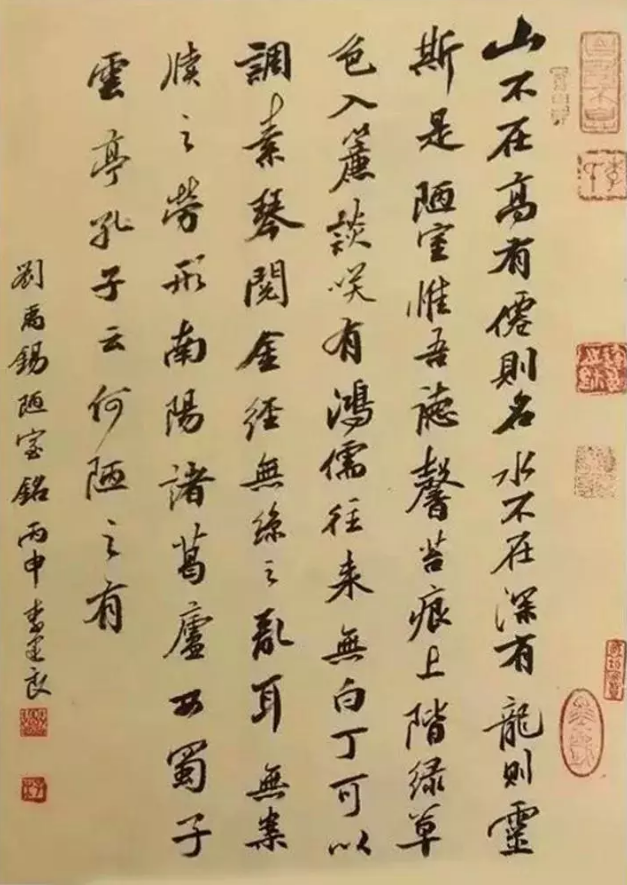 山不在高有僊則名水不在深有龍則靈
斯是陋室惟吾德馨苔痕上階緑草
色入簾談笑有鴻儒往来無白丁可以
調素琴閱金經無絲之亂耳無案
牘之勞形南陽諸葛廬西蜀子
雲亭孔子云何陋之有
劉禹錫陋室銘丙申李建良